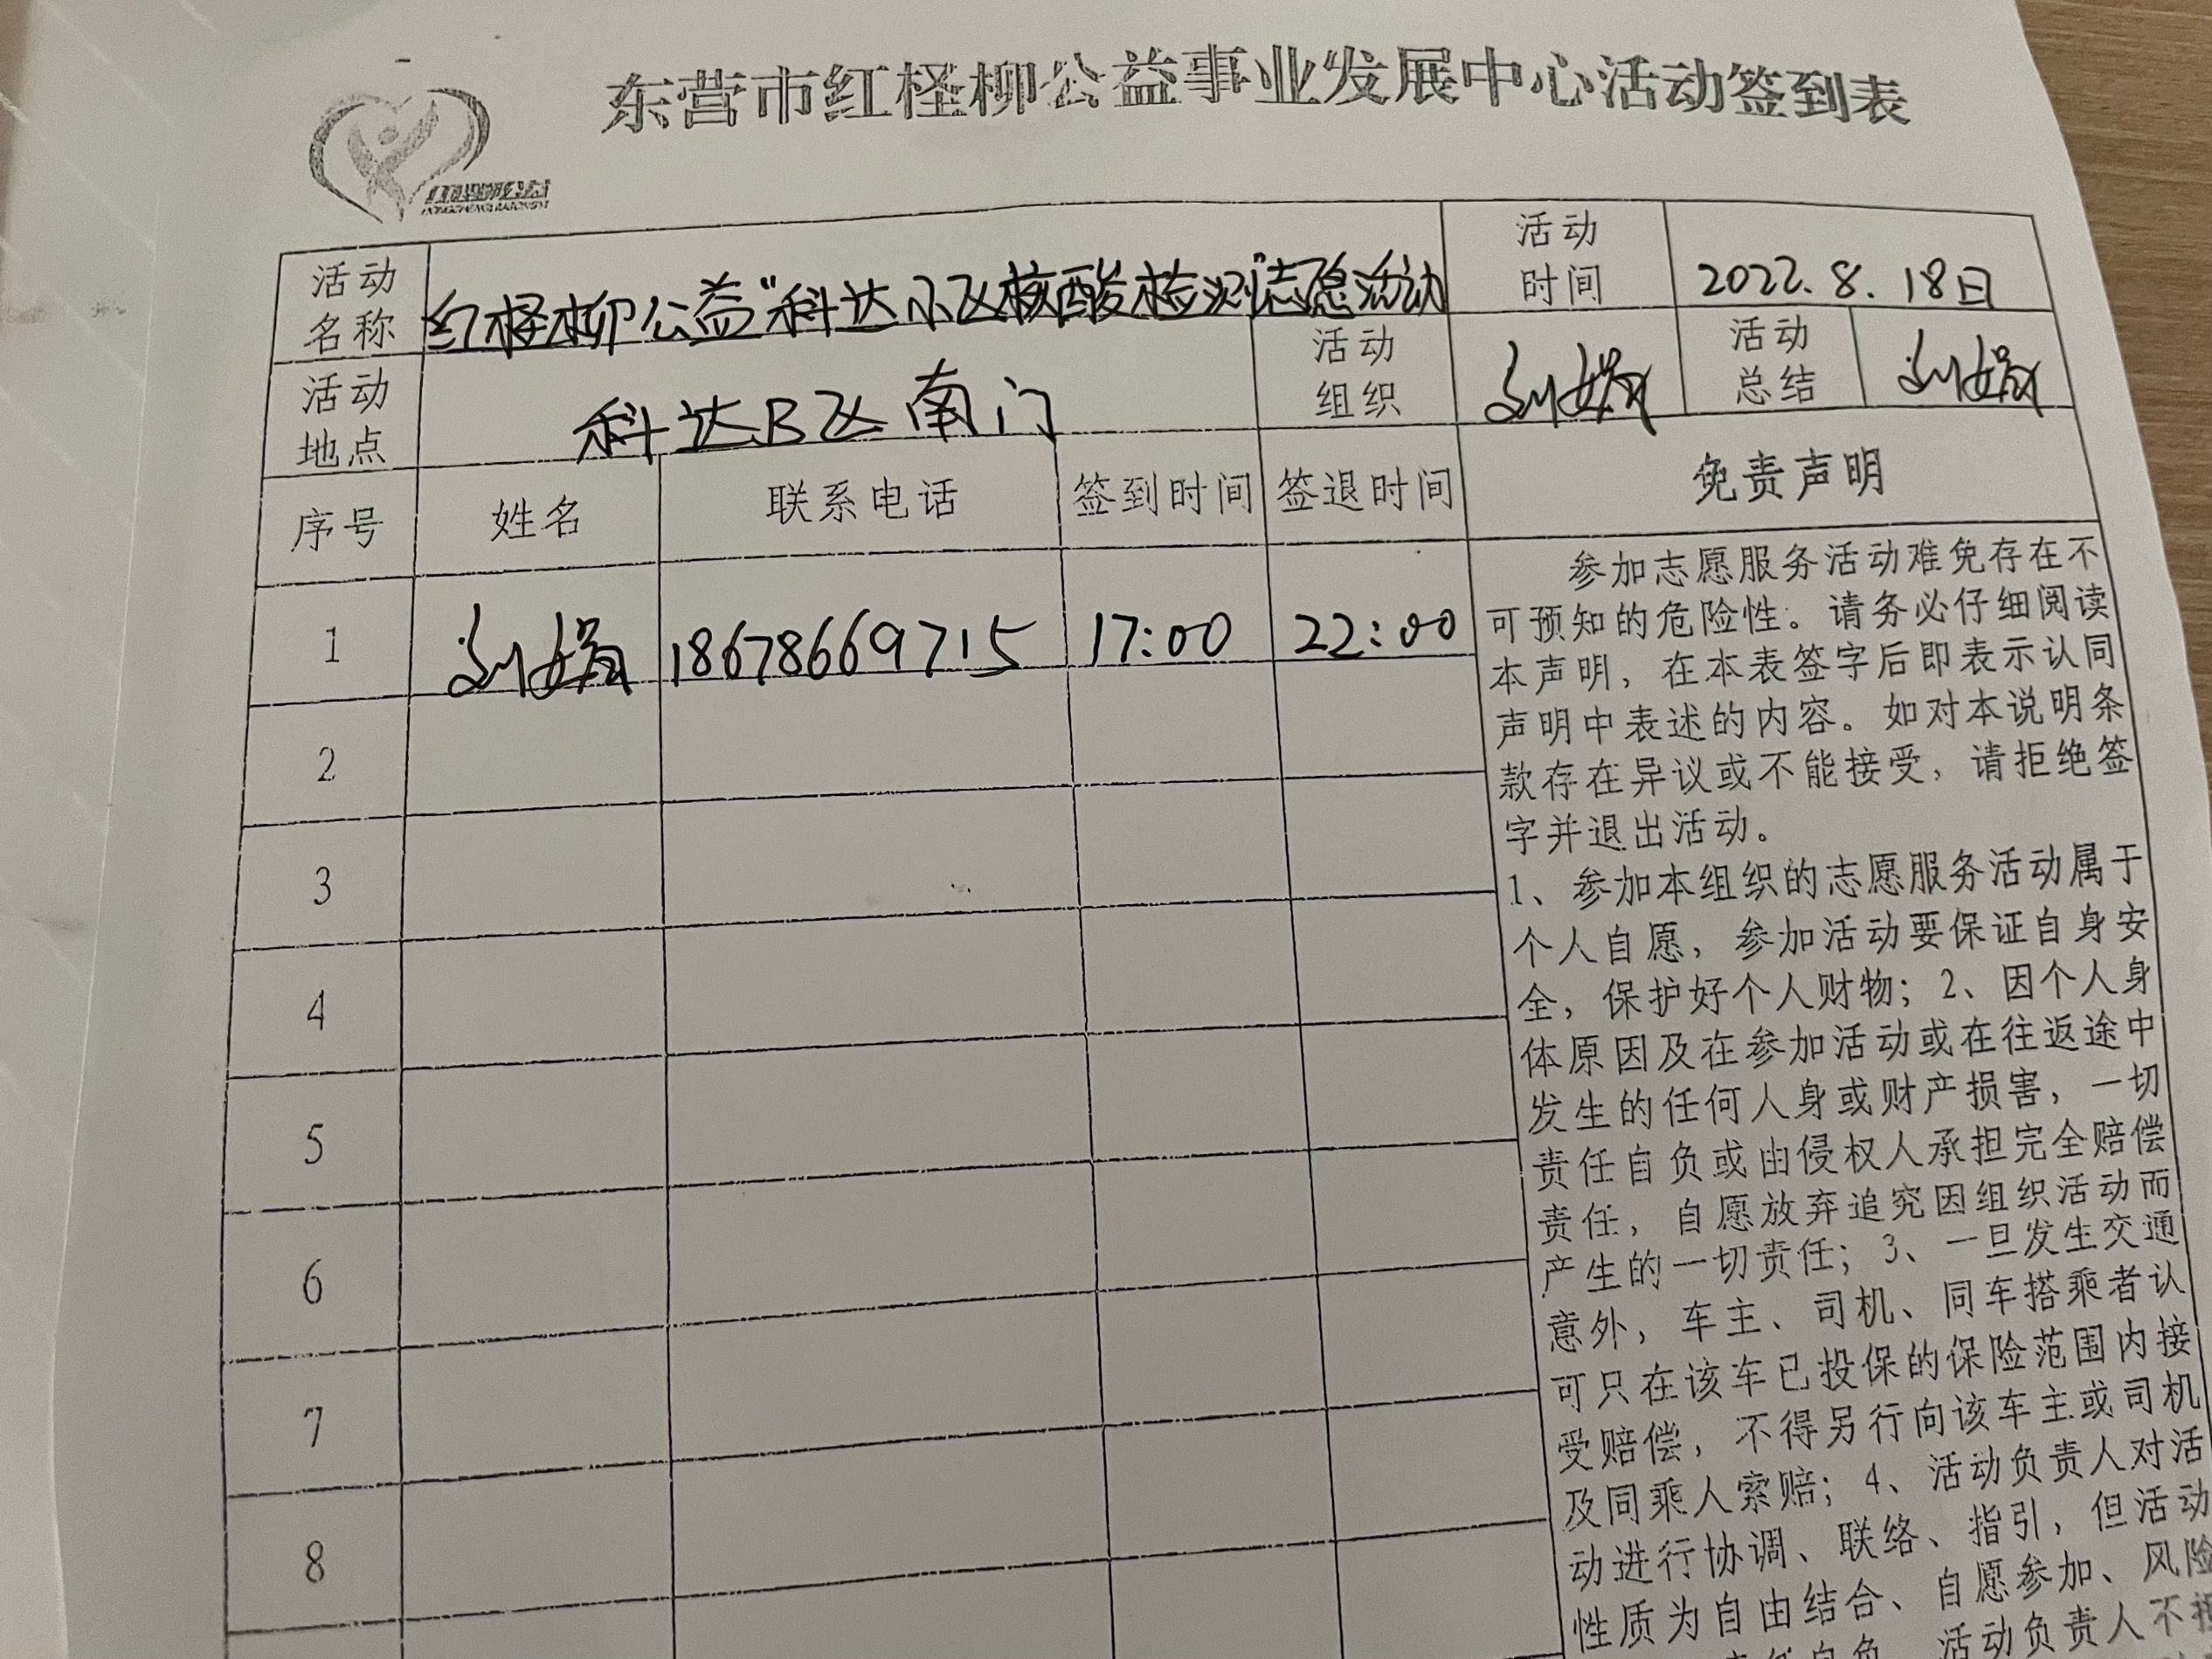 东营市红柽柳公益事业发展中心活动签到表
红柽柳公益
活动名称
红柽柳公益“科达小区核酸检测”志愿活动
活动时间
2022.8.18日
活动地点
科达B区南门
活动组织
刘娟
活动总结
刘娟
序号 姓名 联系电话 签到时间 签退时间 免责声明
1 刘娟 18678669715 17:00 22:00
2
3
4
5
6
7
8
参加志愿服务活动难免存在不
可预知的危险性。请务必仔细阅读
本声明，在本表签字后即表示认同
声明中表述的内容。如对本说明条
款存在异议或不能接受，请拒绝签
字并退出活动。
1、参加本组织的志愿服务活动属于
个人自愿，参加活动要保证自身安
全，保护好个人财物；2、因个人身
体原因及在参加活动或在往返途中
发生的任何人身或财产损害，一切
责任自负或由侵权人承担完全赔偿
责任，自愿放弃追究因组织活动而
产生的一切责任；3、一旦发生交通
意外，车主、司机、同车搭乘者认
可只在该车已投保的保险范围内接
受赔偿，不得另行向该车主或司机
及同乘人索赔；4、活动负责人对活
动进行协调、联络、指引，但活动
性质为自由结合、自愿参加、风险
责任自负，活动负责人不担